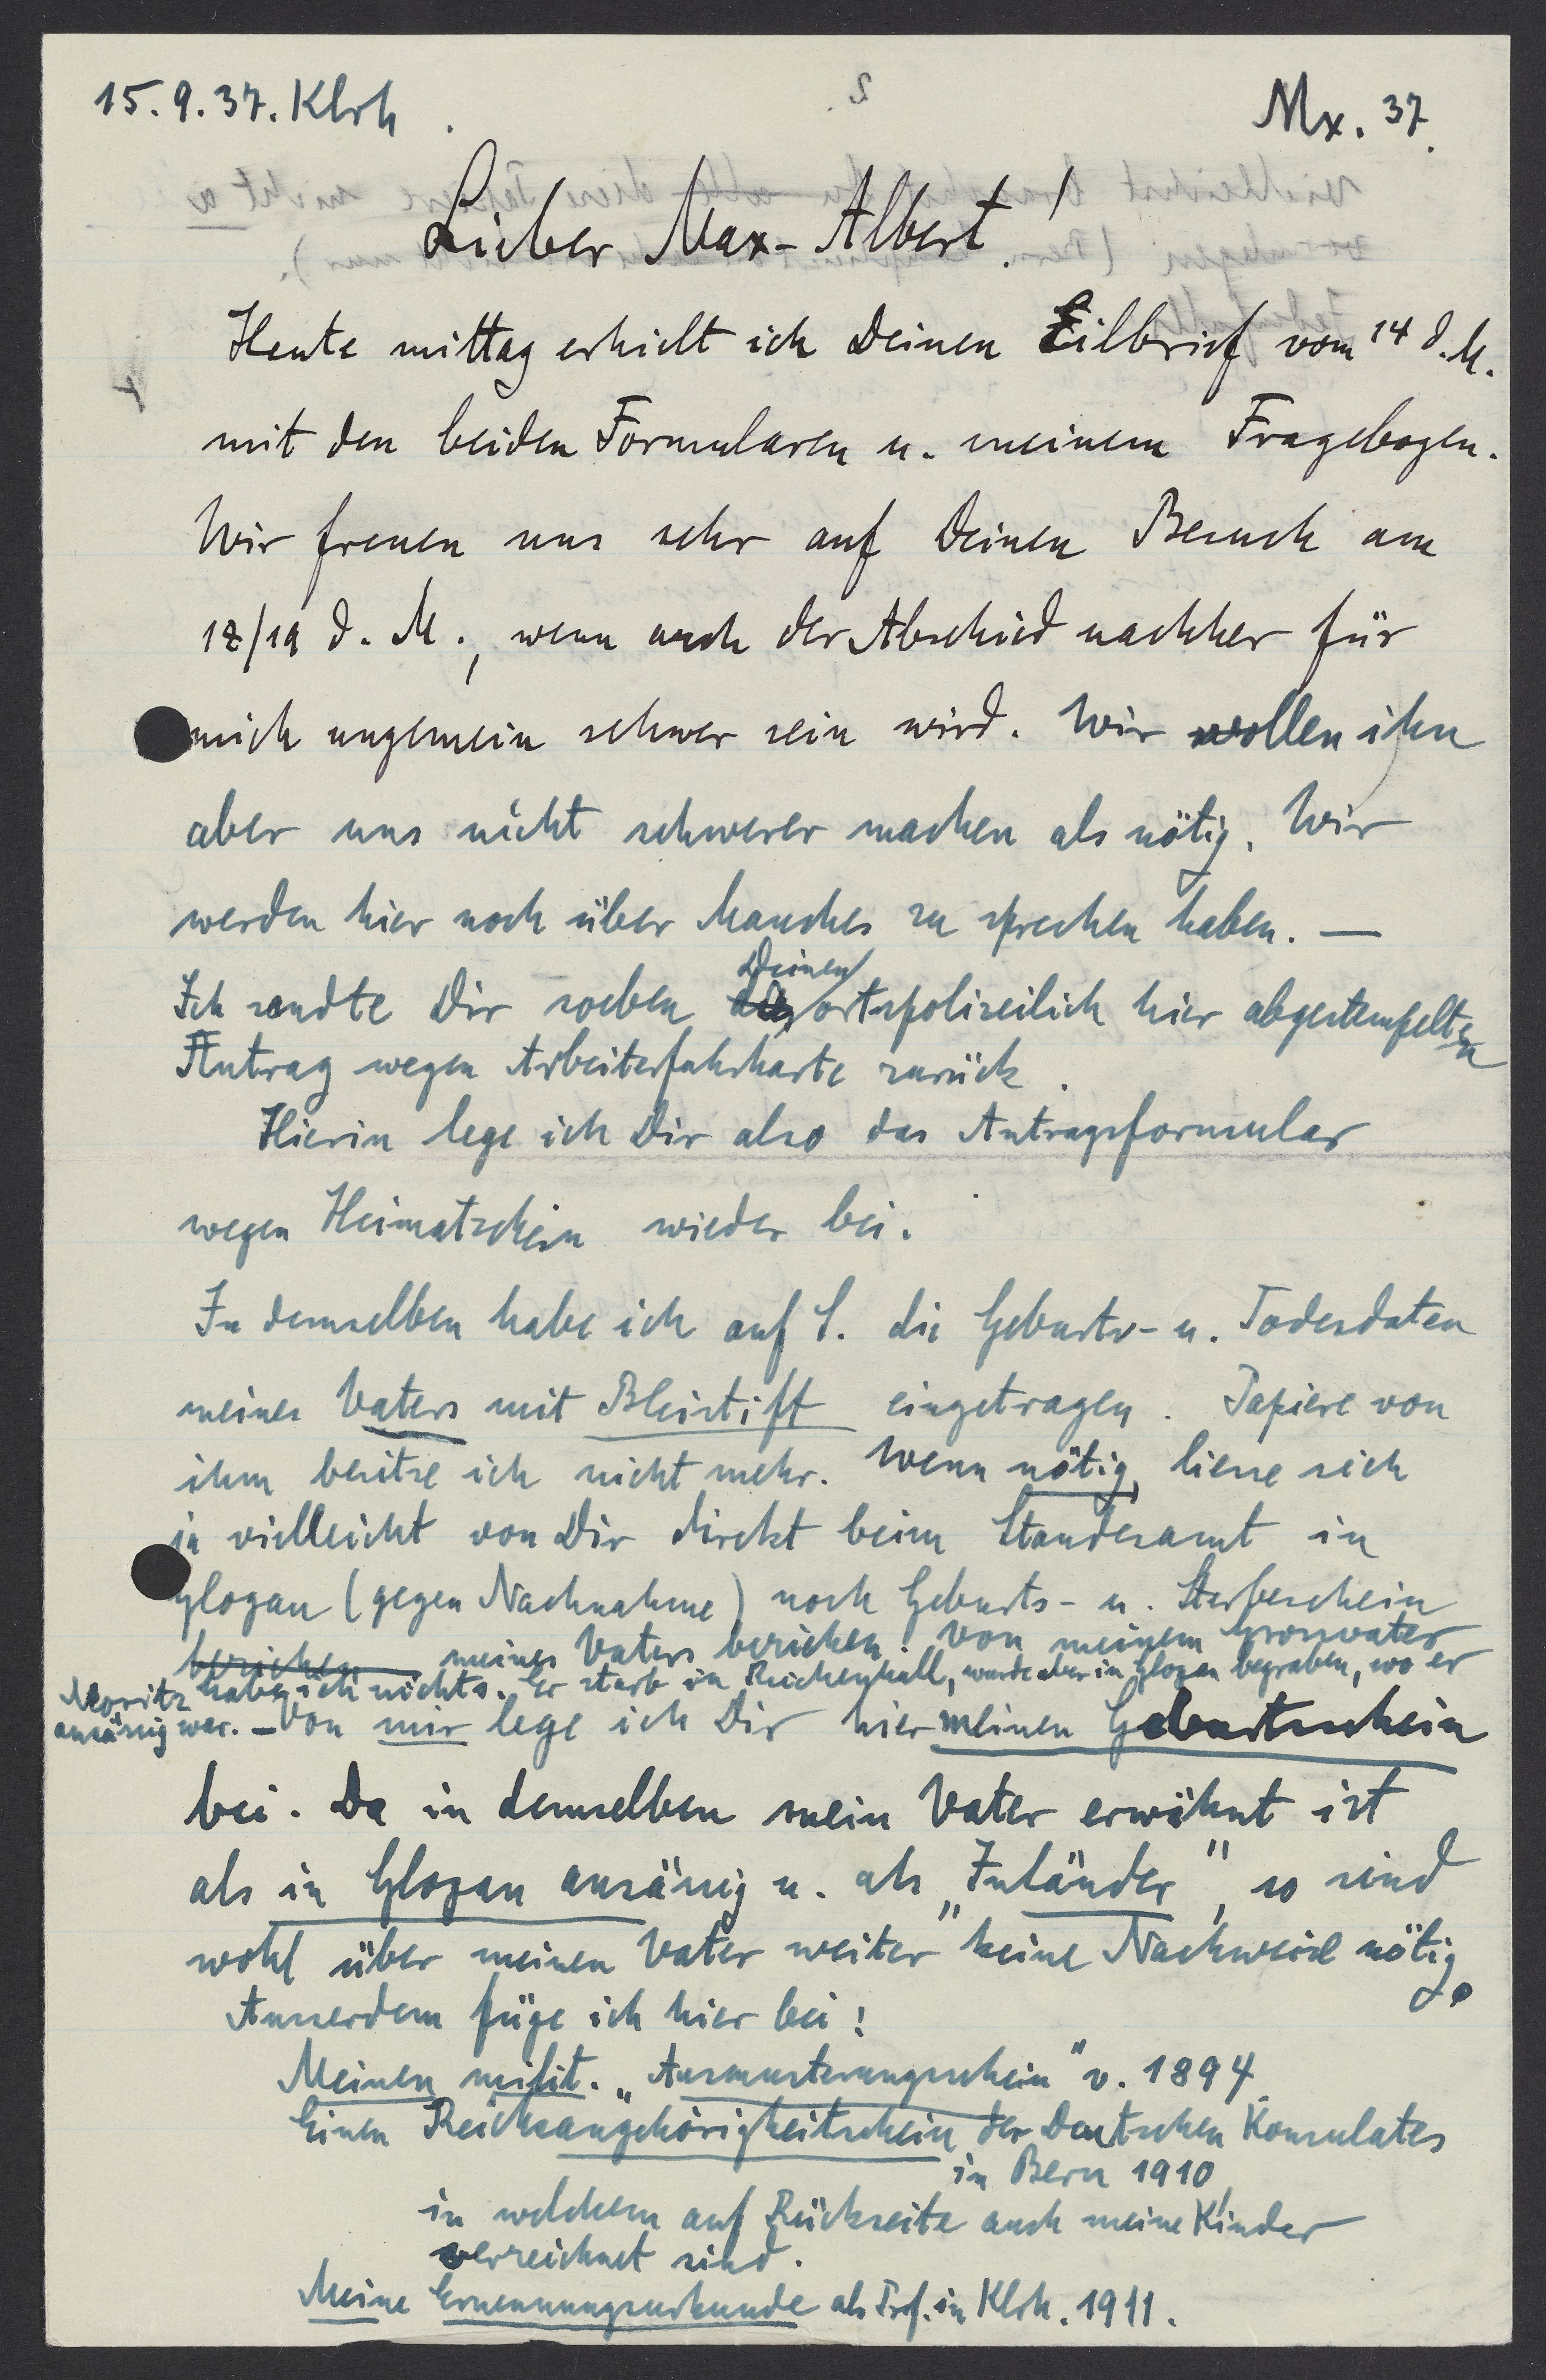 15.9.37. Klrh.
Mx. 37.
Lieber Max-Albert!
Heute mittag erhielt ich Deinen Eilbrief vom 14 d.M.
mit den beiden Formularen u. meinem Fragebogen.
Wir freuen uns sehr auf Deinen Besuch am
18/19 d. M., wenn auch der Abschied nachher für
mich ungemein schwer sein wird. Wir wollen ihn
aber uns nicht schwerer machen als nötig. Wir
werden hier noch über Manches zu sprechen haben. —
Ich sandte Dir soeben Deinen ortspolizeilich hier abgestempelten
Antrag wegen Arbeiterfahrkarte zurück.
Hierin lege ich Dir also das Antragsformular
wegen Heimatschein wieder bei.
In demselben habe ich auf S. die Geburts- u. Todesdaten
meines Vaters mit Bleistift eingetragen. Papiere von
ihm besitze ich nicht mehr. Wenn nötig, liesse sich
ja vielleicht von Dir direkt beim Standesamt in
Glogau (gegen Nachnahme) noch Geburts- u. Sterbeschein
beziehen meines Vaters beziehen. Von meinem Grossvater
Moritz habe ich nichts. Er starb in Reichenhall, wurde aber in Glogau begraben, wo er
ansässig war. – Von mir lege ich Dir hier meinen Geburtsschein
bei. Da in demselben mein Vater erwähnt ist
als in Glogau ansässig u. als „Inländer", so sind
wohl über meinen Vater weiter keine Nachweise nötig.
Ausserdem füge ich hier bei:
Meinen milit. „Ausmusterungsschein" v. 1894
Einen Reichsangehörigkeitschein des Deutschen Konsulates
in Bern 1910,
in welchem auf Rückseite auch meine Kinder
verzeichnet sind.
Meine Ernennungsurkunde als Prof. in Klrh. 1911.